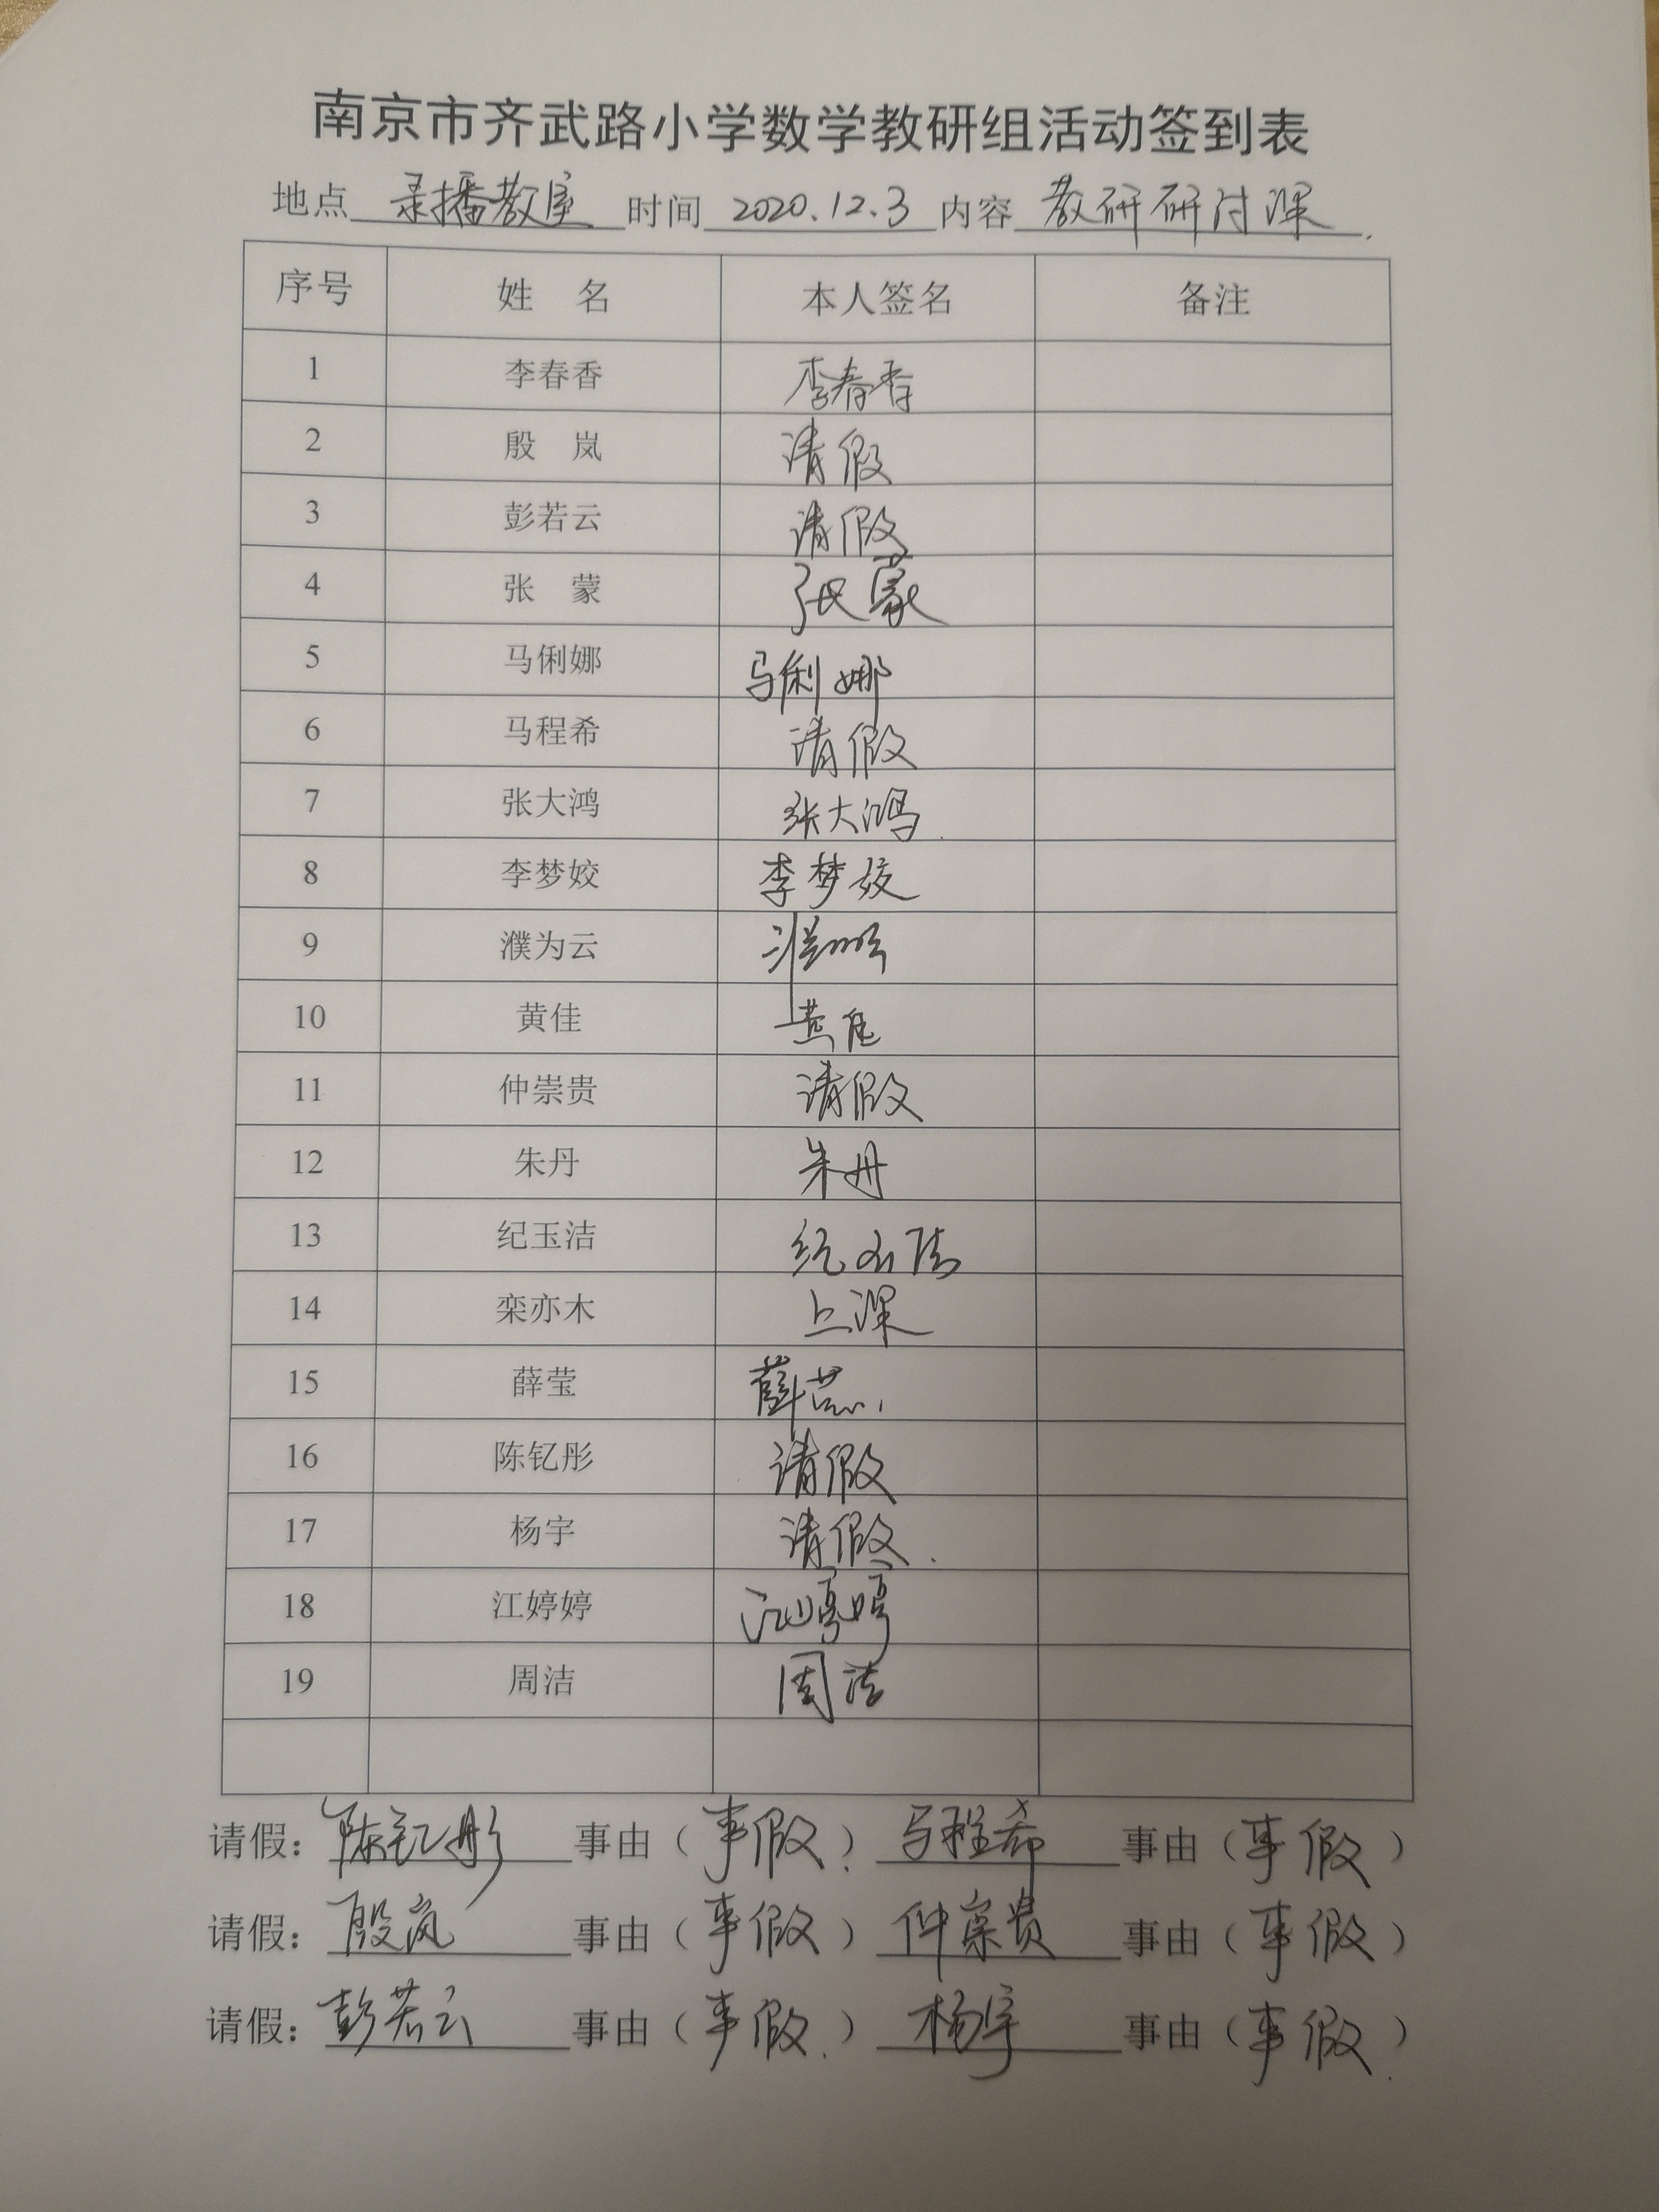 南京市齐武路小学数学教研组活动签到表
地点 录播教室 时间 2020.12.3 内容 教研研讨课.
序号 姓 名 本人签名 备注
1 李春香 李春香
2 殷 岚 请假
3 彭若云 请假
4 张 蒙 张蒙
5 马俐娜 马俐娜
6 马程希 请假
7 张大鸿 张大鸿
8 李梦姣 李梦姣
9 濮为云 濮为云
10 黄佳 黄佳
11 仲崇贵 请假
12 朱丹 朱丹
13 纪玉洁 纪玉洁
14 栾亦木 上课
15 薛莹 薛莹
16 陈钇彤 请假
17 杨宇 请假.
18 江婷婷 江婷婷
19 周洁 周洁
请假：陈钇彤 事由（事假.）马程希 事由（事假）
请假：殷岚 事由（事假）仲崇贵 事由（事假）
请假：彭若云 事由（事假.）杨宇 事由（事假.）